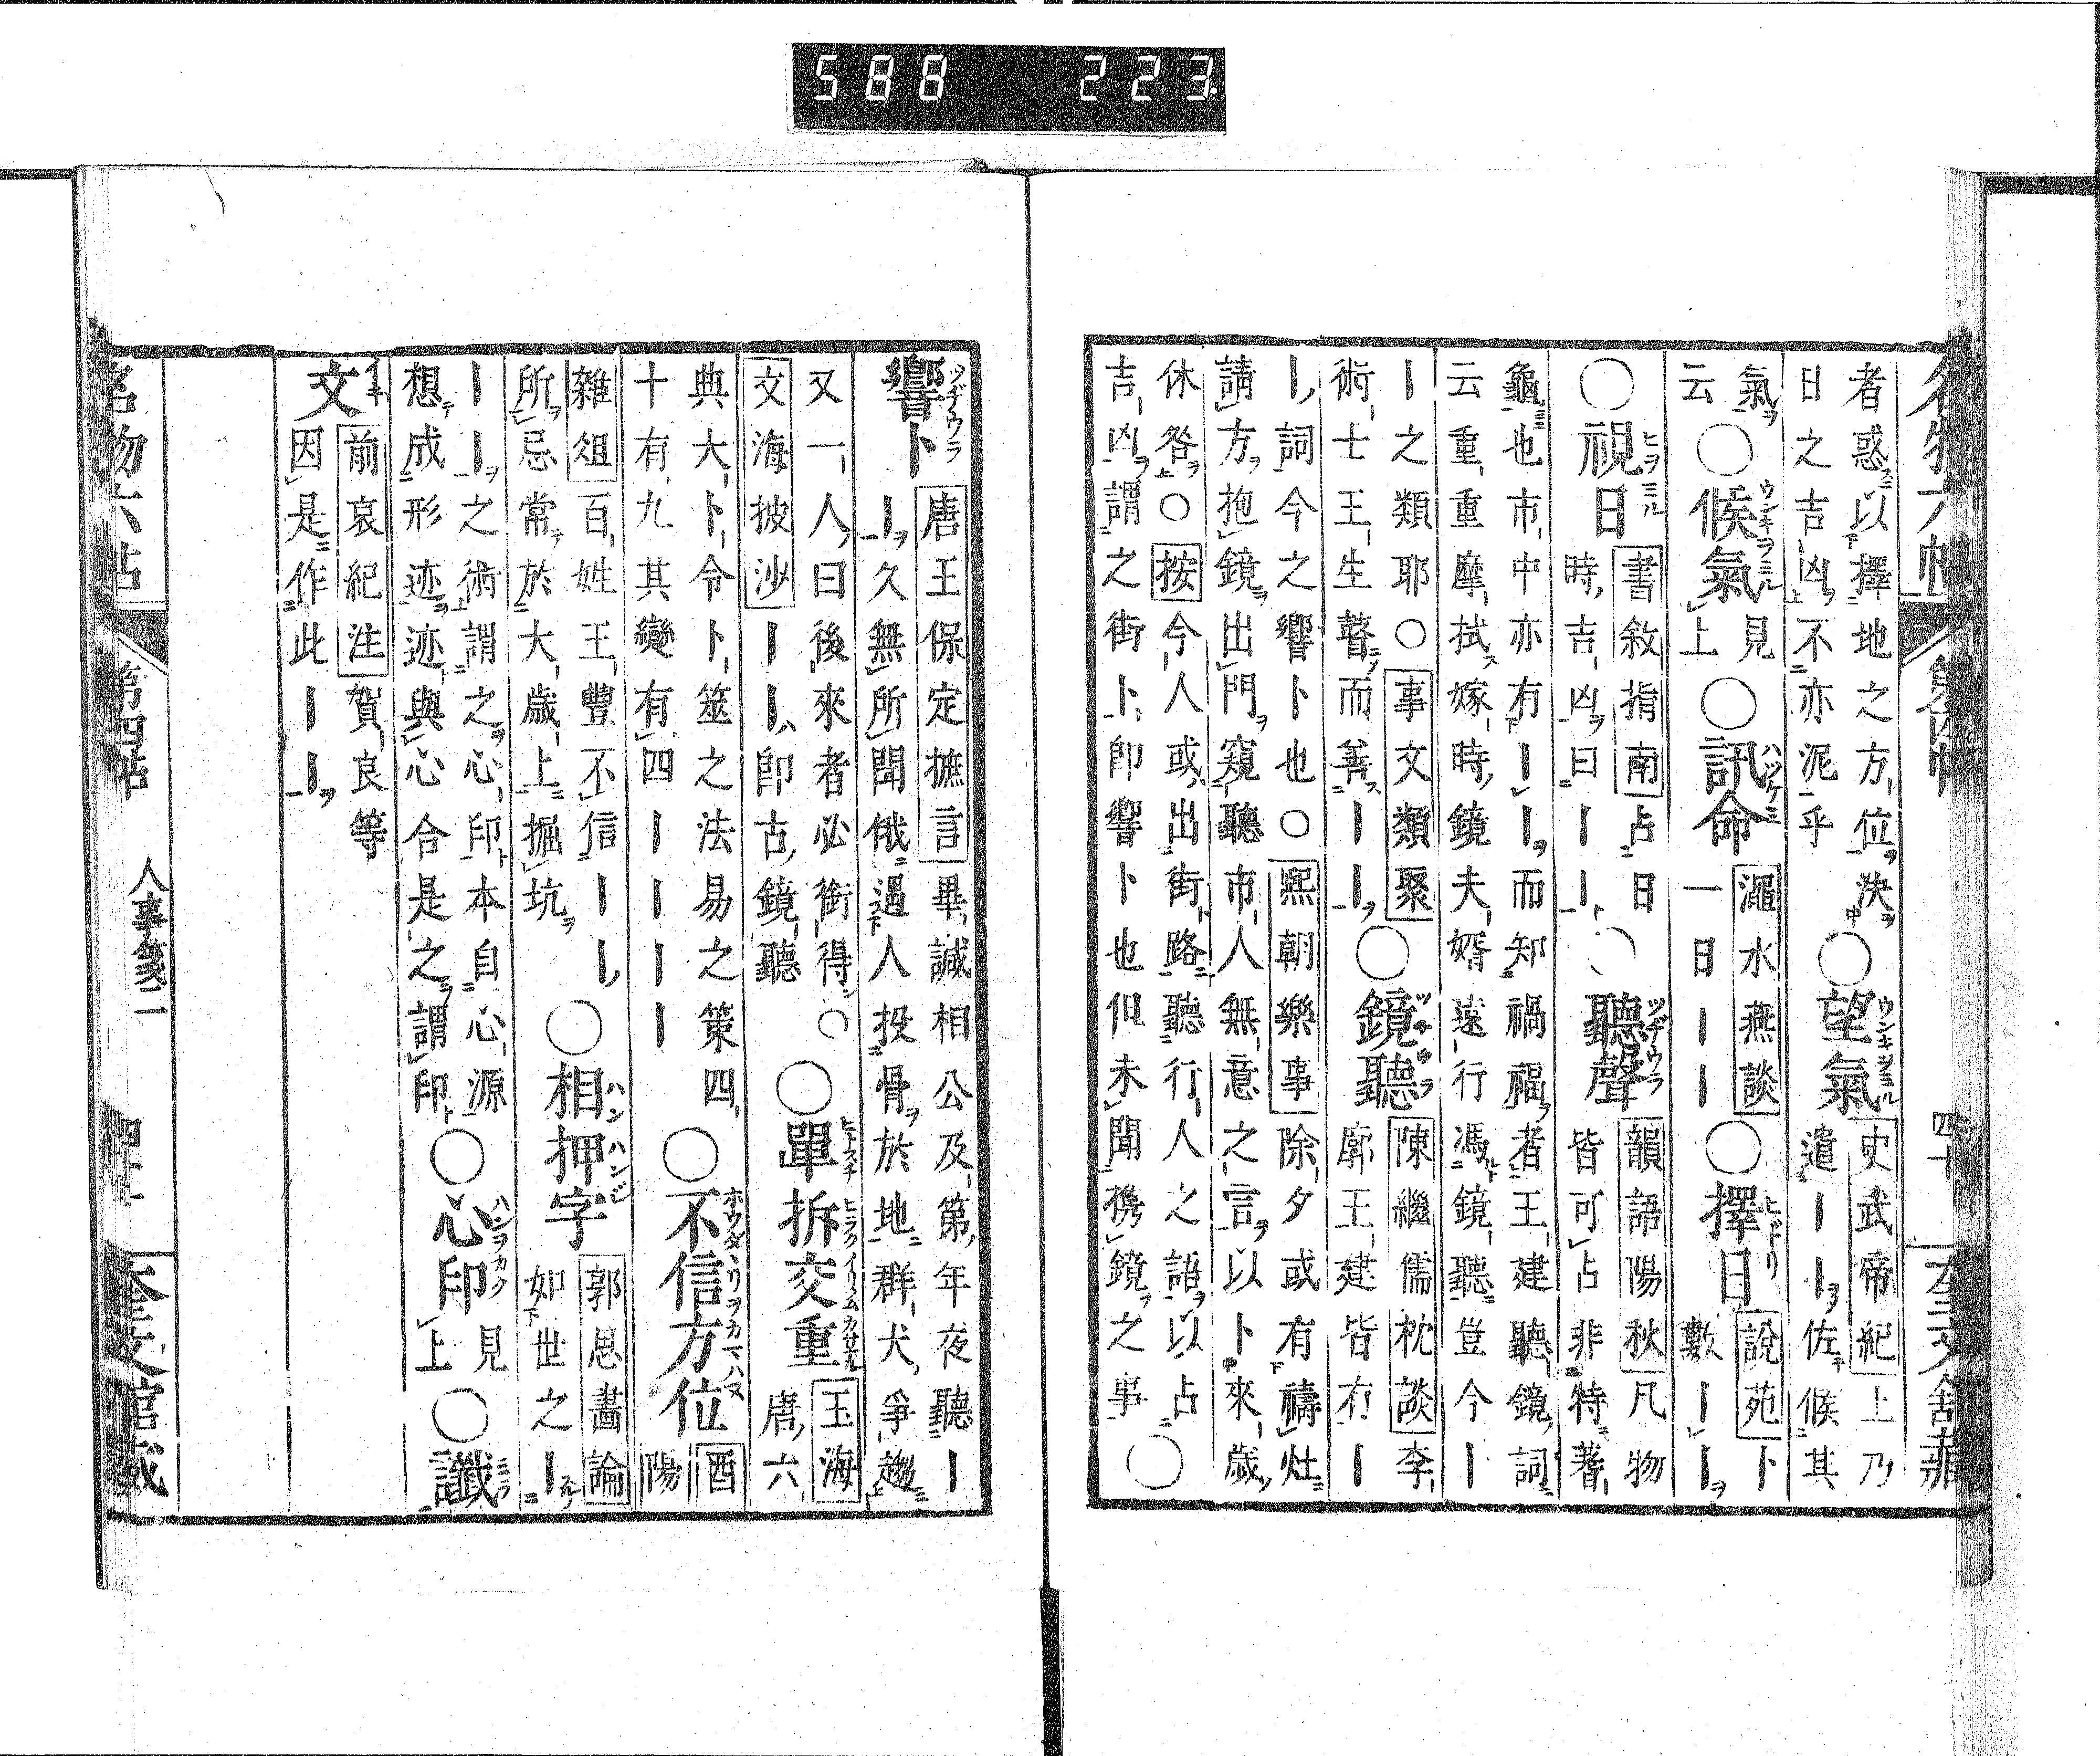 588 223
名物六帖 第四帖 四十 奎文館藏
者惑以擇地之方位決
日之吉凶不亦泥乎
○望氣
史武帝紀上乃
遣丨丨佐候其
氣
云
○候氣
見
上
○訊命
澠水燕談
一日丨丨
○擇日
說苑卜
數丨丨
○視日
書敘指南占日
時吉凶曰丨丨
○聽聲
韻語陽秋凡物
皆可占非特蓍
龜也市中亦有丨丨而知禍福者王建聽鏡詞
云重重摩拭嫁時鏡夫婿遠行馮鏡聽豈今丨
丨之類耶○事文類聚
術士王生瞽而善丨丨
○鏡聽
陳繼儒枕談李
廓王建皆有丨
丨詞今之響卜也○熙朝樂事除夕或有禱灶
請方抱鏡出門窺聽市人無意之言以卜來歲
休咎○按今人或出街路聽行人之語以占
吉凶謂之街卜即響卜也但未聞携鏡之事
○
響卜
唐王保定摭言畢諴相公及第年夜聽丨
丨久無所聞俄遇人投骨於地群犬爭趨
又一人曰後來者必銜得○
文海披沙丨丨即古鏡聽
○單拆交重
玉海
唐六
典大卜令卜筮之法易之策四
十有九其變有四丨丨丨丨
○不信方位
酉
陽
雜俎百姓王豐不信丨丨
所忌常於大歲上掘坑
○相押字
郭思畫論
如世之丨
丨丨之術謂之心印本自心源
想成形迹迹與心合是之謂印
○心印
見
上
○讖
文
前哀紀注賀良等
因是作此丨丨
名物六帖 第四帖 人事箋二 奎文館藏